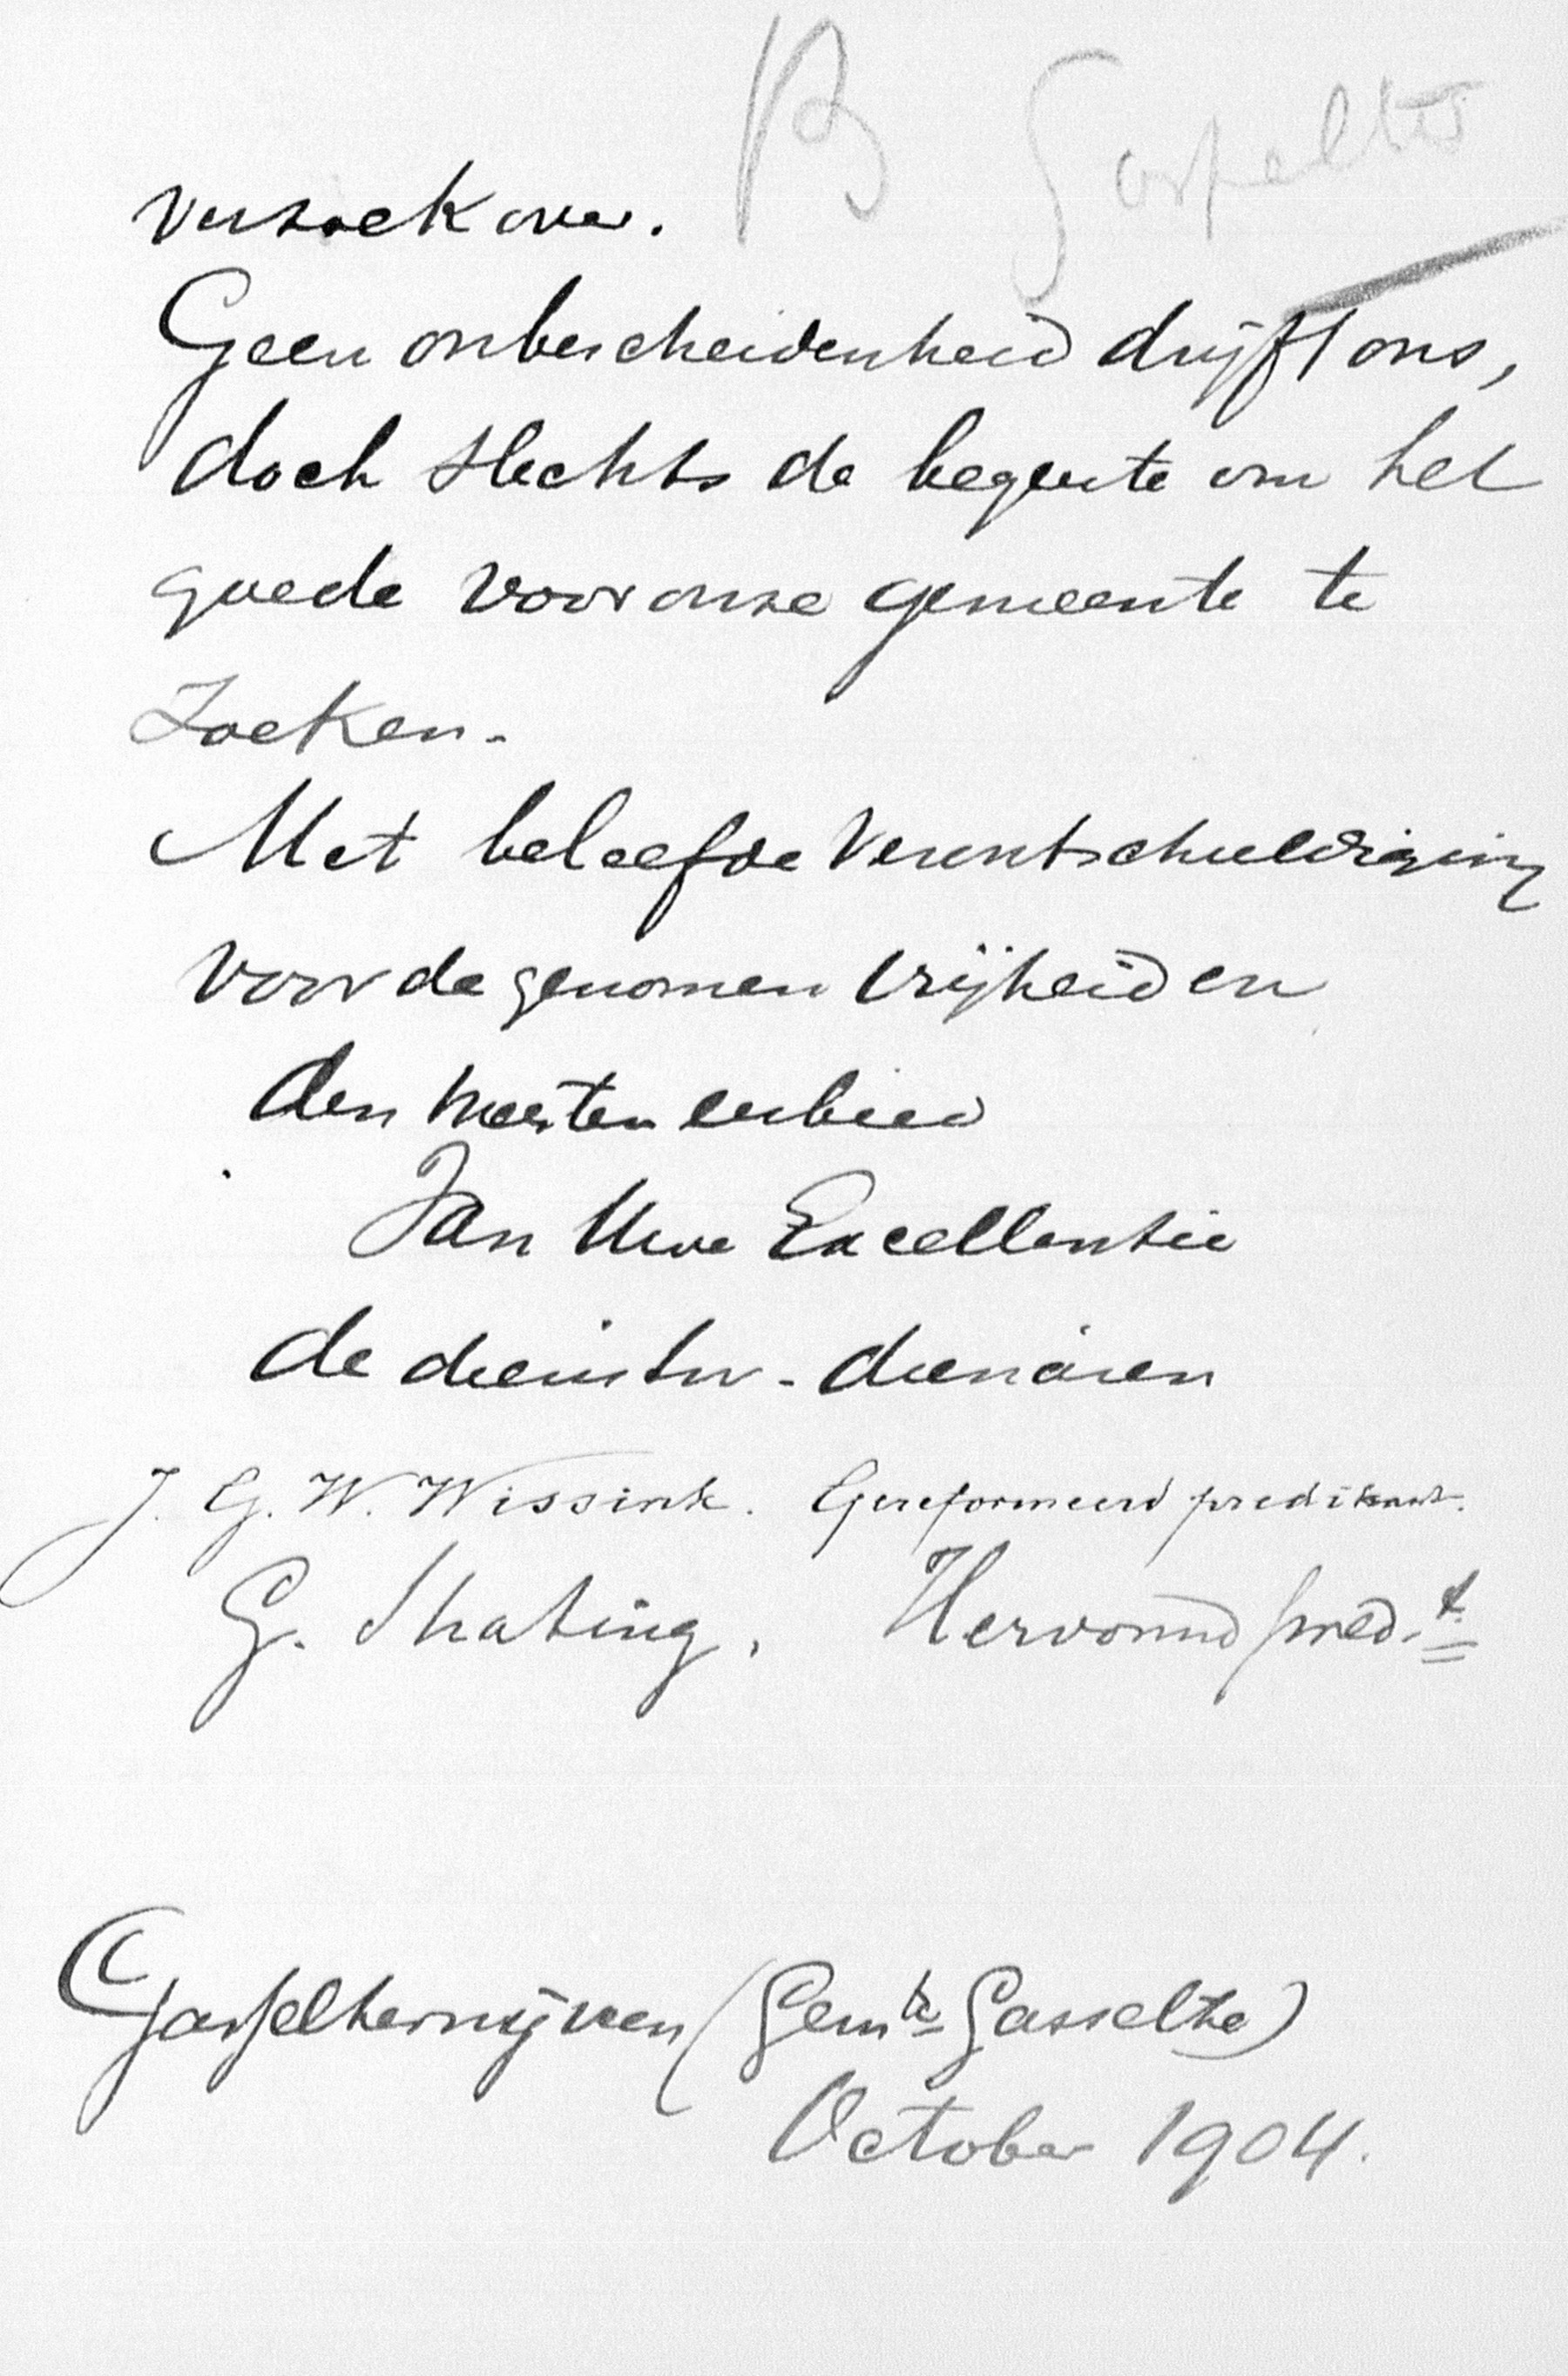 B Gasselte
verzoek over.
Geen onbescheidenheid drijft ons,
doch slechts de begeerte om het
goede voor onze gemeente te
zoeken.
Met beleefde verontschuldiging
voor de genomen vrijheid en
den meesten eerbied
Van Uwe Excellentie
de dienstw. dienaren
J. G. W. Wissink. Gereformeerd predikant.
G. Shating, Hervormd pred.t
Gasselternijveen (Gemte Gasselte)
October 1904.